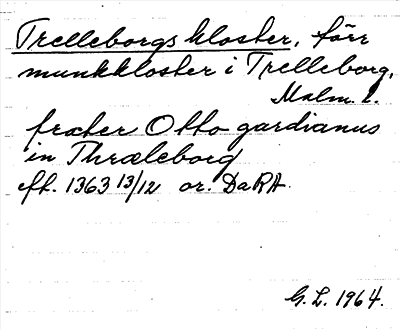 Trelleborgs kloster, förr
munkkloster i Trelleborg,
Malm. l.
frater Otto gardianus
in Thræleborg
eft. 1363 13/12 or. DaRA.
G. L. 1964.